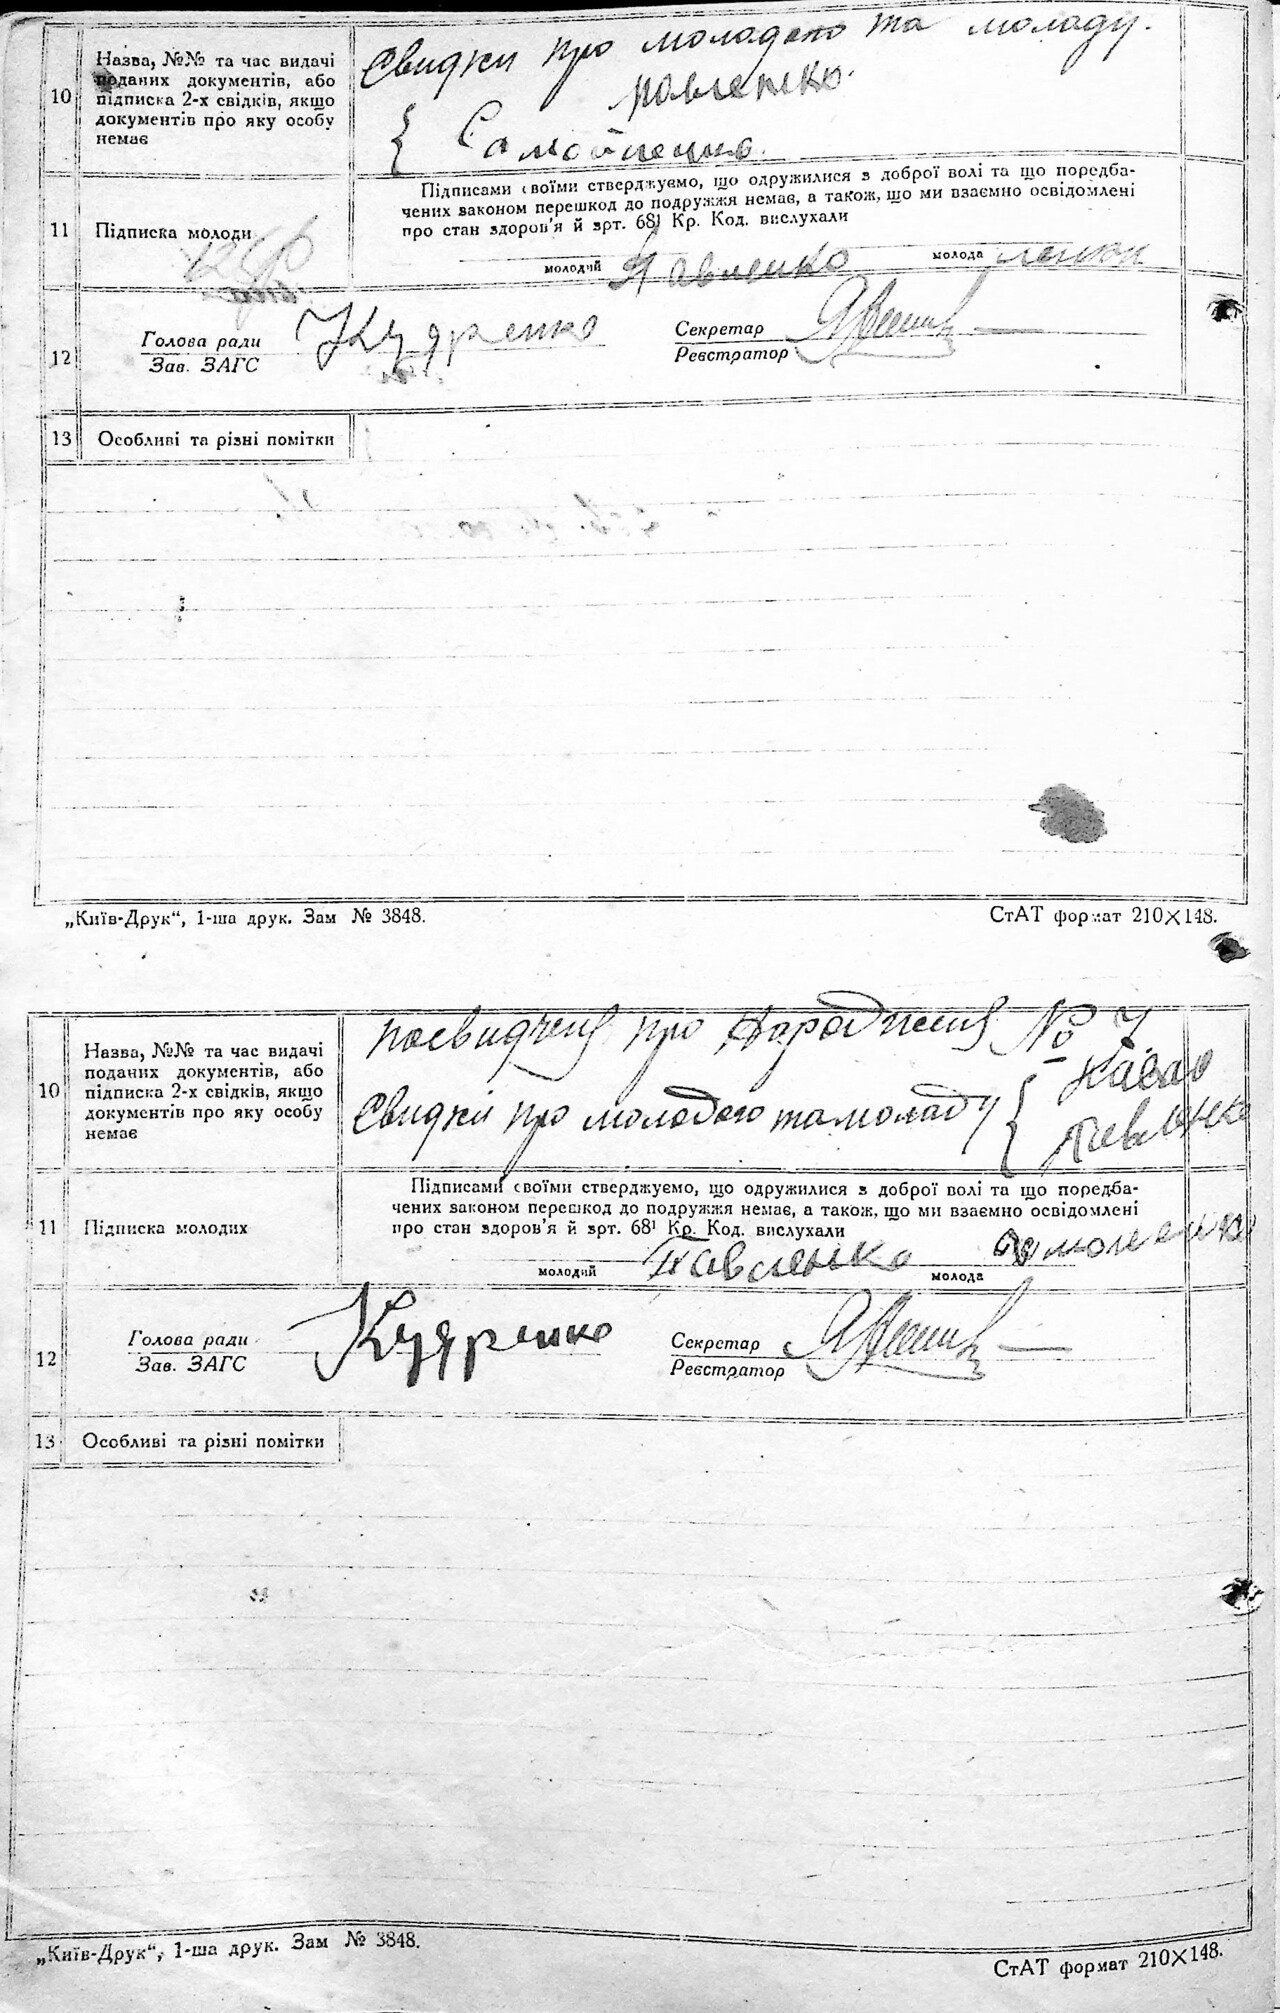 Свидки про молодого та молоду.
10
Назва, №№ та час видачі
поданих документів, або
підписка 2-х свідків, якщо
документів про яку особу
немає
Павленко.
Самойленко.
11
Підписка молоди
Підписами своїми стверджуємо, що одружилися з доброї волі та що передба-
чених законом перешкод до подружжя немає, а також, що ми взаємно освідомлені
про стан здоров'я й зрт. 68¹ Кр. Код. вислухали
молодий Павленко молода
12
Голова ради
Зав. ЗАГС
Кудренко
Секретар
Реєстратор
13
Особливі та різні помітки
„Київ-Друк“, 1-ша друк. Зам № 3848.
СтАТ формат 210×148.
10
Назва, №№ та час видачі
поданих документів, або
підписка 2-х свідків, якщо
документів про яку особу
немає
посвидченя про народження № 7
Свидки про молодого та молоду {
Павленко
11
Підписка молодих
Підписами своїми стверджуємо, що одружилися з доброї волі та що передба-
чених законом перешкод до подружжя немає, а також, що ми взаємно освідомлені
про стан здоров'я й зрт. 68¹ Кр. Код. вислухали
молодий Павленко молода
12
Голова ради
Зав. ЗАГС
Кудренко
Секретар
Реєстратор
13
Особливі та різні помітки
„Київ-Друк“, 1-ша друк. Зам № 3848.
СтАТ формат 210×148.